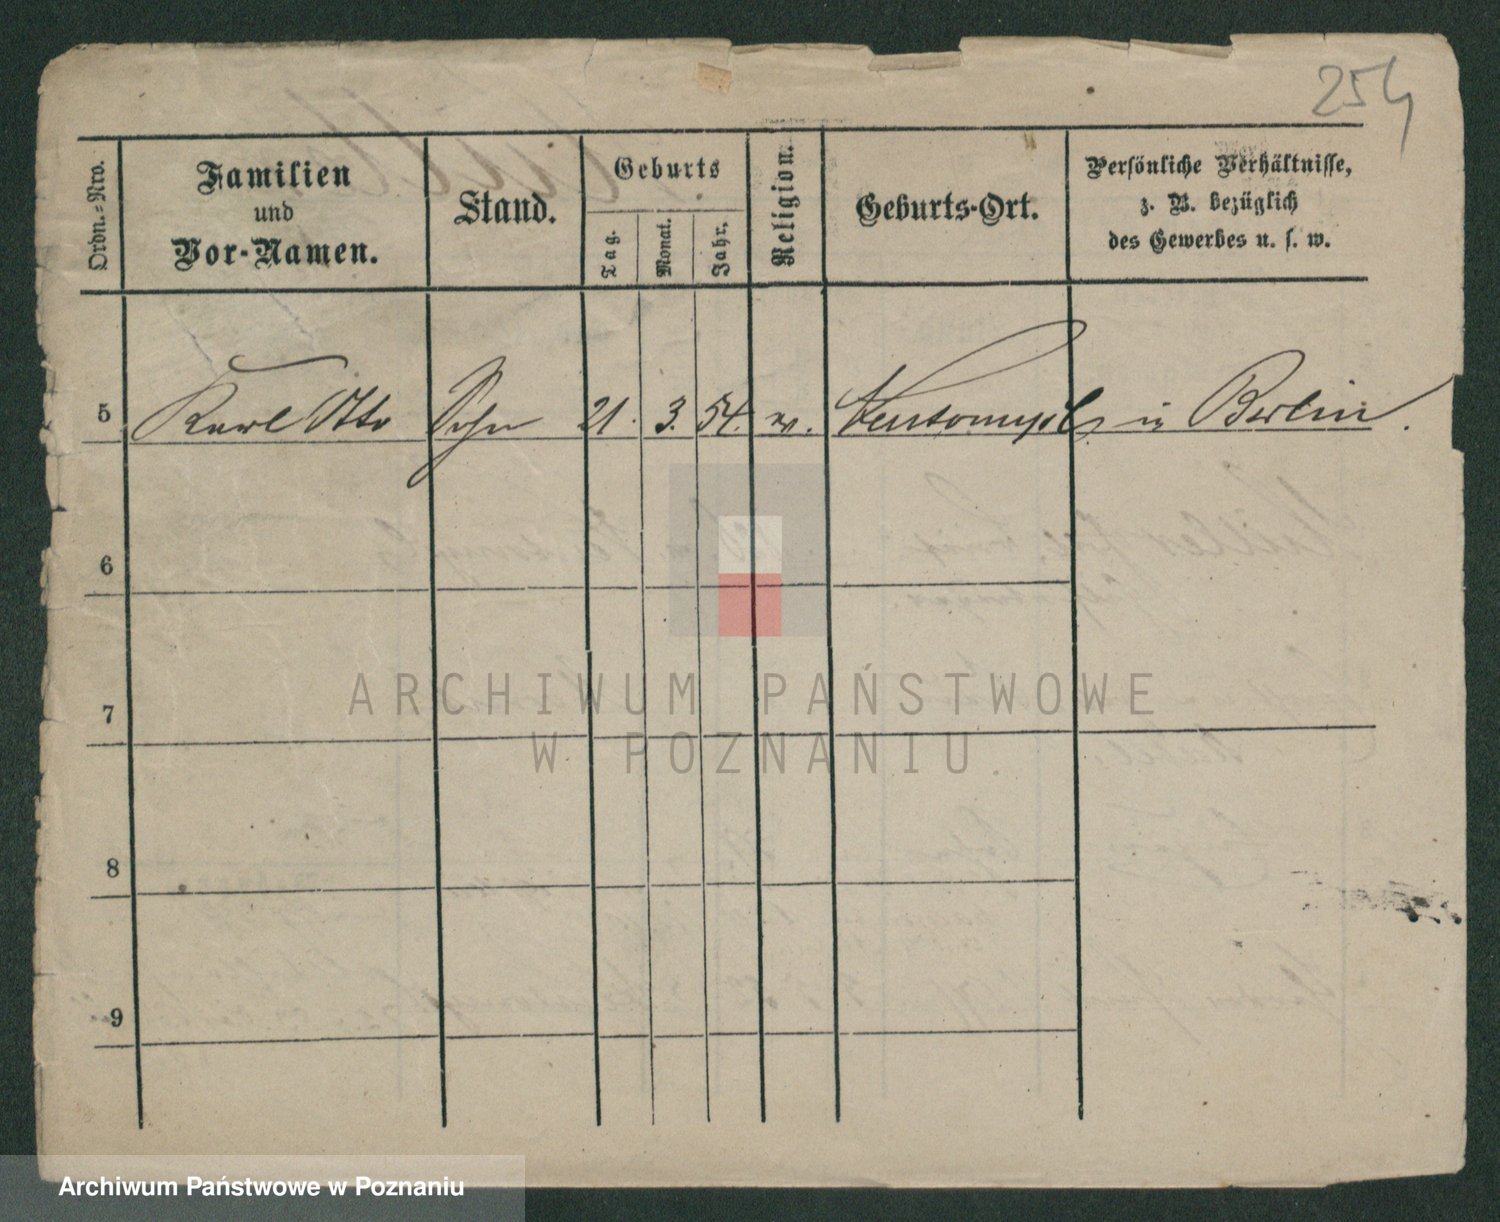 254
Ordn.-Nro.
Familien
und
Vor-Namen.
Stand.
Geburts
Tag.
Monat.
Jahr.
Religion.
Geburts-Ort.
Persönliche Verhältnisse,
z. B. bezüglich
des Gewerbes u. s. w.
5 Karl Otto Sohn 21. 3. 54. ev. Neutomysl in Berlin.
6
7
8
9
ARCHIWUM PAŃSTWOWE
W POZNANIU
Archiwum Państwowe w Poznaniu